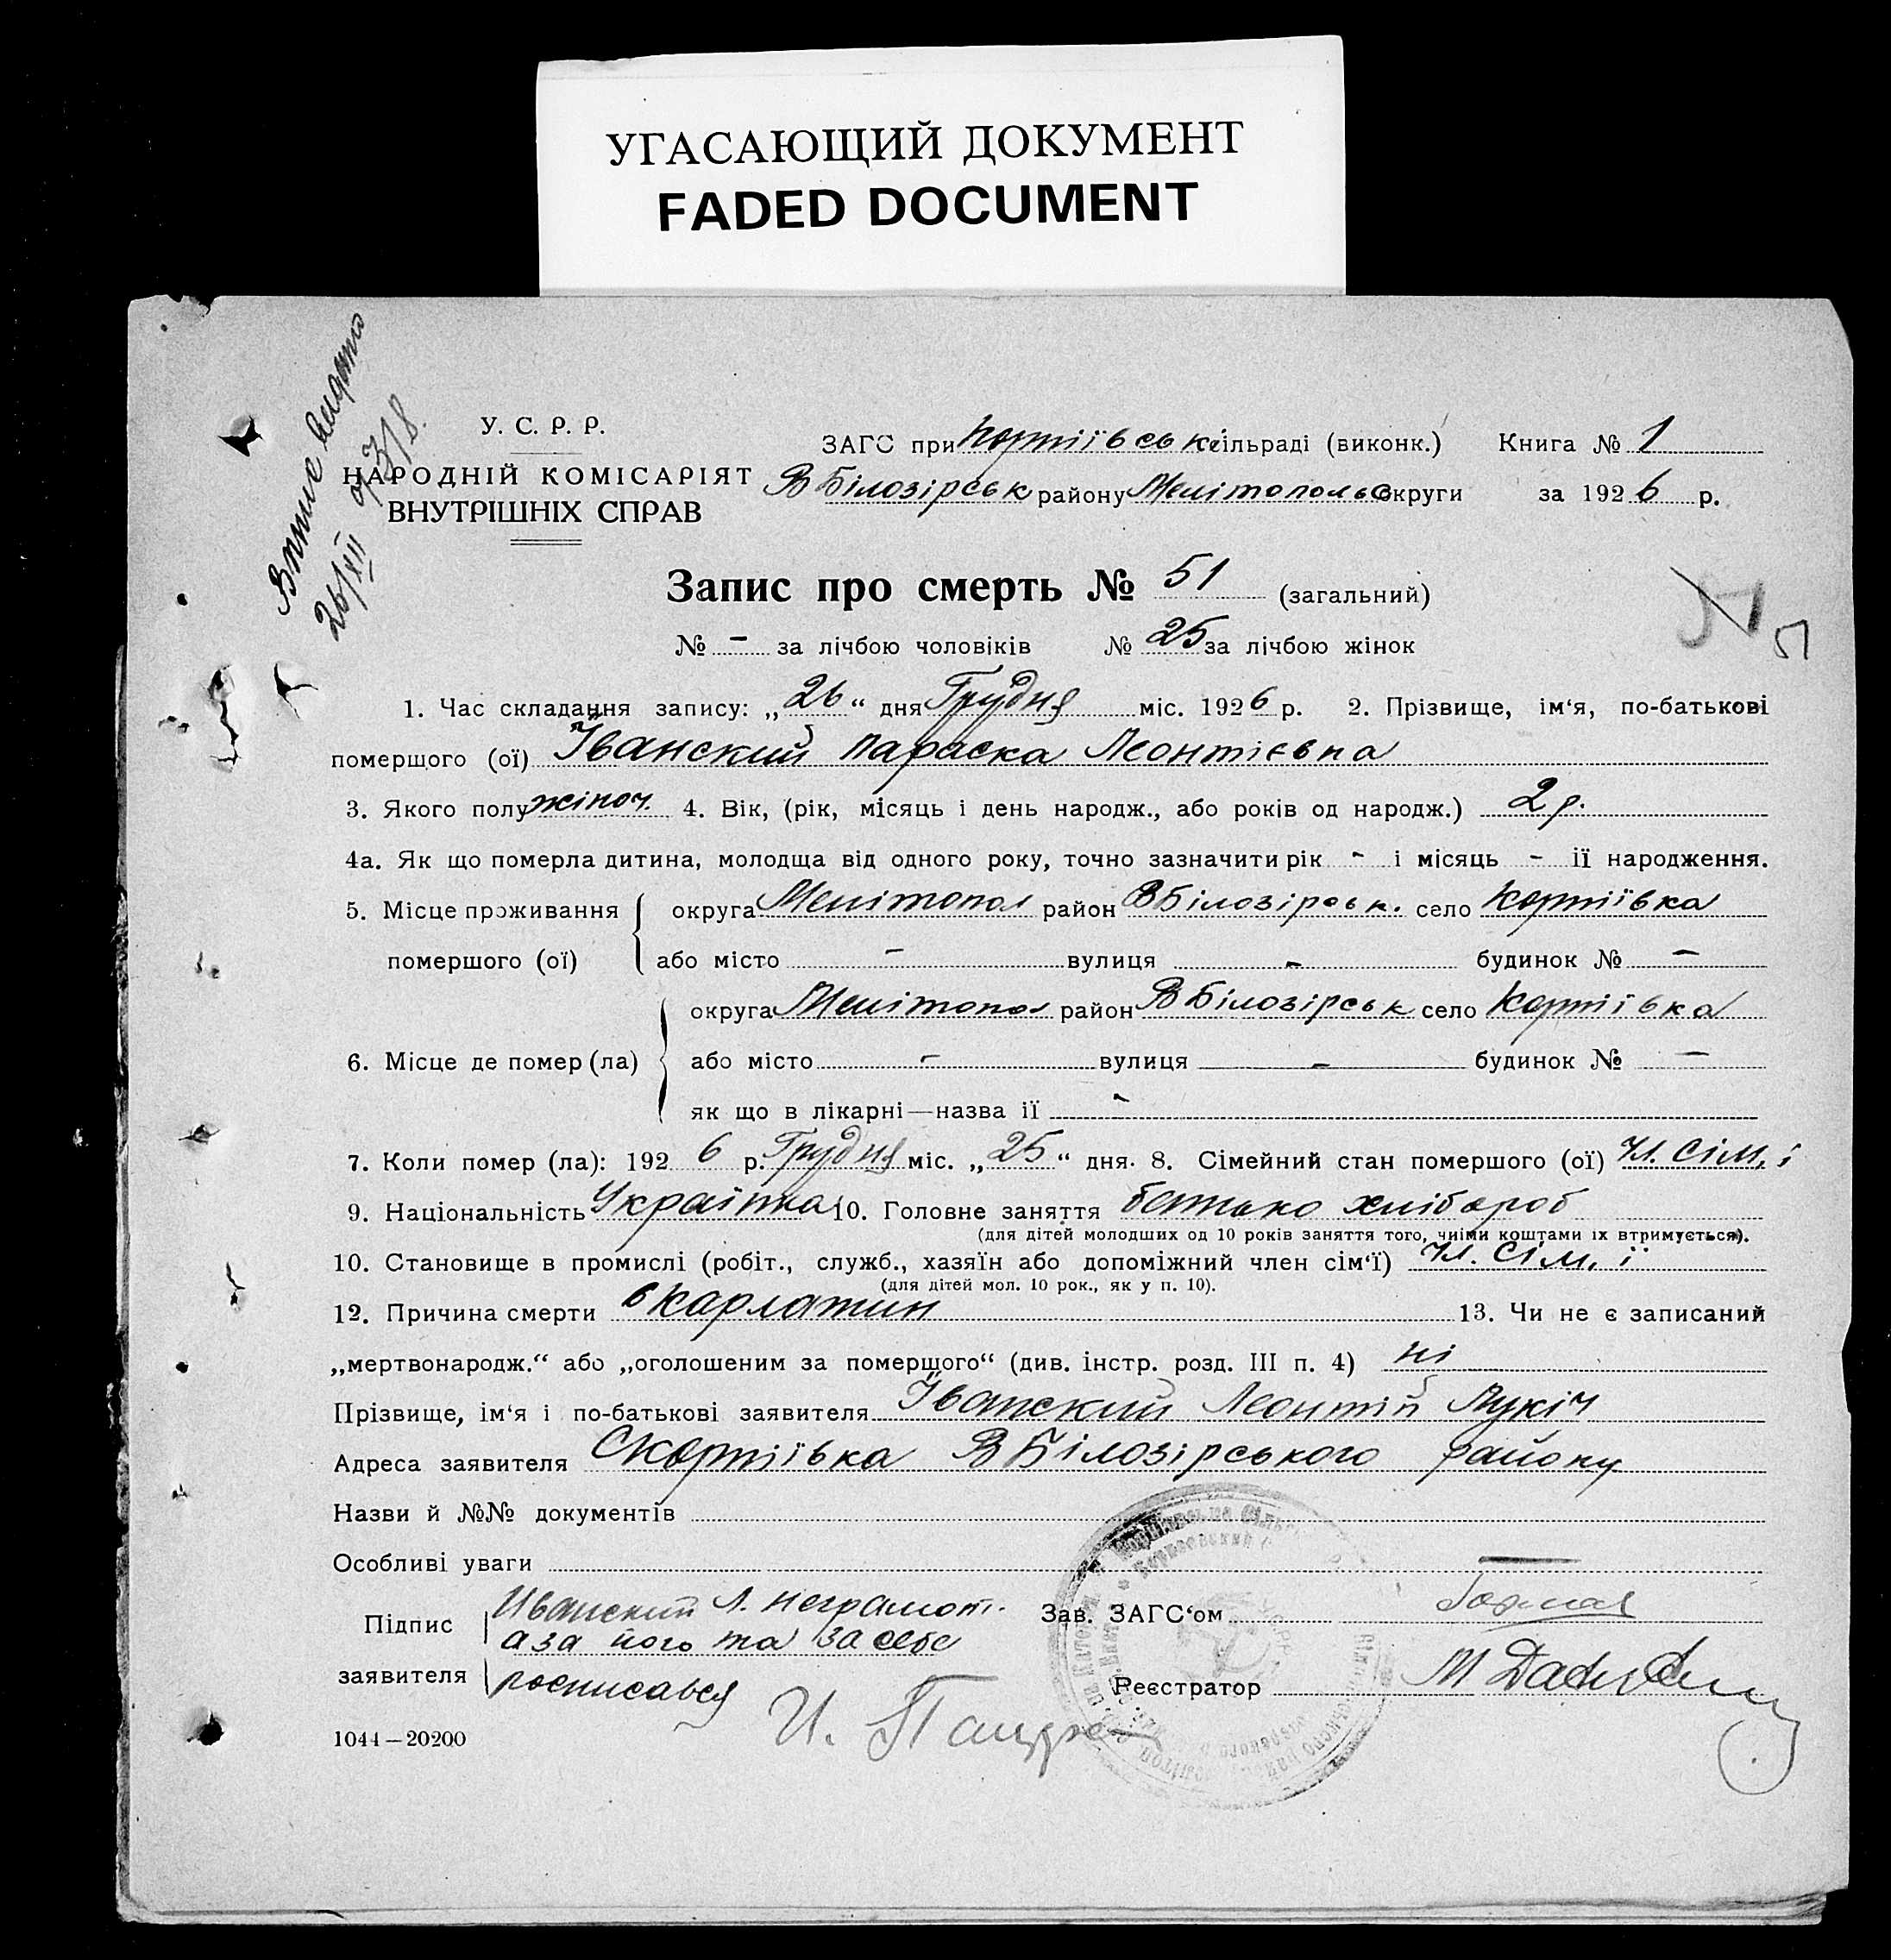 УГАСАЮЩИЙ ДОКУМЕНТ
FADED DOCUMENT
Випис видано
26/XII
У. С. Р. Р.
НАРОДНІЙ КОМІСАРІЯТ
ВНУТРІШНІХ СПРАВ
ЗАГС при Кортіївськ сільраді (виконк.) Книга № 1
В Білозірськ району Мелітопольс округи за 1926 р.
Запис про смерть № 51 (загальний)
51
№ - за лічбою чоловіків № 25 за лічбою жінок
1. Час складання запису: „26“ дня Грудня міс. 1926 р. 2. Прізвище, ім‘я, по-батькові
померщого (ої) Іванский Параска Леонтієвна
3. Якого полу жіноч. 4. Вік, (рік, місяць і день народж., або років од народж.) 2 р.
4а. Як що померла дитина, молодща від одного року, точно зазначити рік - і місяць - ії народження.
5. Місце проживання округа Мелітопол район ВБілозірськ. село Кортіївка
померщого (ої) або місто - вулиця - будинок № -
округа Мелітопол район ВБілозірськ село Кортіївка
6. Місце де помер (ла) або місто - вулиця - будинок № -
як що в лікарні—назва ії -
7. Коли помер (ла): 1926 р. Грудня міс. „25“ дня. 8. Сімейний стан померщого (ої) Чл. сім, ї
9. Національність Українка 10. Головне заняття батько хлібороб
(для дітей молодших од 10 років заняття того, чиїми коштами їх втримується).
10. Становище в промислі (робіт., служб., хазяїн або допоміжний член сім‘ї) Чл. сім, ї
(для дітей мол. 10 рок., як у п. 10).
12. Причина смерти скарлатин 13. Чи не є записаний
„мертвонародж.“ або „оголошеним за померщого“ (див. інстр. розд. III п. 4) ні
Прізвище, ім‘я і по-батькові заявителя Іванский Леонтій Лукіч
Адреса заявителя С Кортіївка ВБілозірського району
Назви й №№ документів
Особливі уваги
Підпис Иванский Л. неграмот.
а за його та за себе
заявителя росписався
Зав. ЗАГС‘ом
Реєстратор
1044—20200